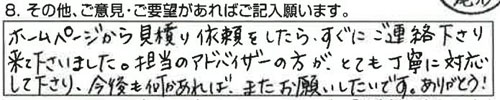 8. その他、ご意見・ご要望があればご記入願います。
ホームページから見積り依頼をしたら、すぐにご連絡下さり
来て下さいました。担当のアドバイザーの方が、とても丁寧に対応
して下さり、今後も何かあれば、またお願いしたいです。ありがとう!